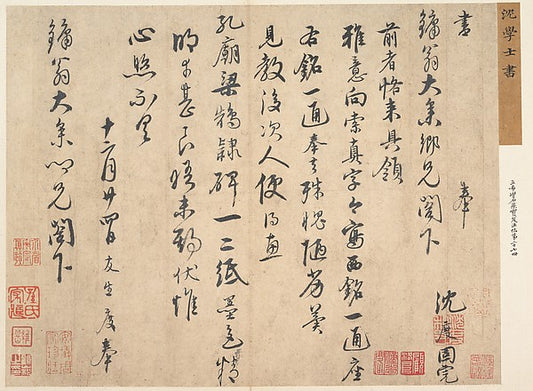 沈學士書
書 奉
鏞翁大參鄉兄閣下
沈度固完
前者恪來具領
雅意向索真字今寫西銘一通座
右銘一通奉去殊愧陋劣冀
見教後次人便得惠
孔廟梁鵠隸碑一二紙墨色精
明者甚良晤未期伏惟
心照不具
十二月廿四日友生度奉
鏞翁大參心兄閣下